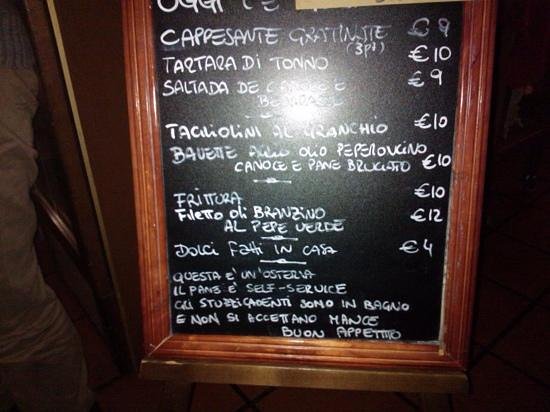 OGGI C'È
CAPPESANTE GRATINATE € 9
(3pz)
TARTARA DI TONNO € 10
SALTADA DE CANOCE E € 9
BEVARASSE
TAGLIOLINI AL GRANCHIO €10
BAVETTE AGLIO OLIO PEPERONCINO
CANOCE E PANE BRUCIATO €10
FRITTURA €10
FILETTO di BRANZINO €12
AL PEPE VERDE
DOLCI FATTI IN CASA € 4
QUESTA E' UN'OSTERIA
IL PANE E' SELF-SERVICE
GLI STUZZICADENTI SONO IN BAGNO
E NON SI ACCETTANO MANCE
BUON APPETITO